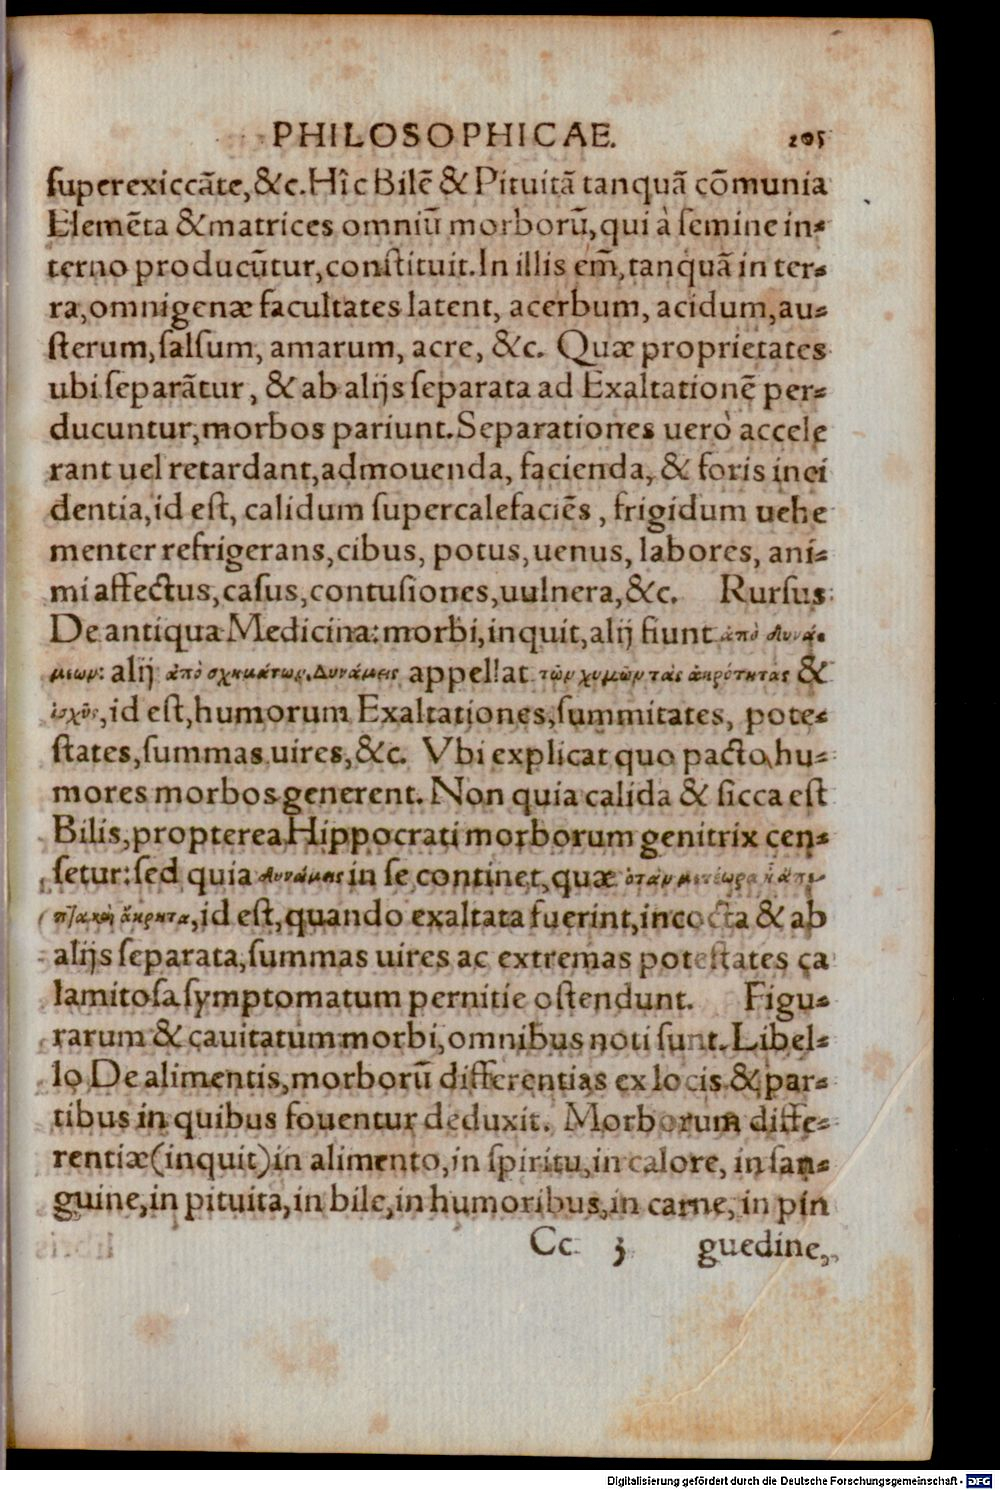 PHILOSOPHICAE. 205
ſuperexiccāte,&c. Hîc Bilē & Pituitā tanquā cōmunia
Elemēta & matrices omniū morborū, qui à ſemine in-
terno producūtur, conſtituit. In illis em̄, tanquā in ter-
ra, omnigenæ facultates latent, acerbum, acidum, au-
ſterum, ſalſum, amarum, acre, &c. Quæ proprietates
ubi ſeparātur, & ab alijs ſeparata ad Exaltationē per-
ducuntur, morbos pariunt. Separationes uerò accele
rant uel retardant, admouenda, facienda, & foris inci
dentia, id eſt, calidum ſupercalefaciēs, frigidum uehe
menter refrigerans, cibus, potus, uenus, labores, ani-
mi affectus, caſus, contuſiones, uulnera, &c. Rurſus
De antiqua Medicina: morbi, inquit, alij fiunt ἀπὸ δυνά-
μεων: alij ἀπὸ σχημάτων. Δυνάμεις appellat τῶν χυμῶν τὰς ἀκρότητας &
ἰσχῦς, id eſt, humorum Exaltationes, ſummitates, pote-
ſtates, ſummas uires, &c. Vbi explicat quo pacto hu-
mores morbos generent. Non quia calida & ſicca eſt
Bilis, propterea Hippocrati morborum genitrix cen-
ſetur: ſed quia δυνάμεις in ſe continet, quæ ὁτὰν μετέωρα
καὶ ἄκρητα, id eſt, quando exaltata fuerint, incocta & ab
alijs ſeparata, ſummas uires ac extremas poteſtates ca
lamitoſa ſymptomatum pernitie oſtendunt. Figu-
rarum & cauitatum morbi, omnibus noti ſunt. Libel-
lo De alimentis, morborū differentias ex locis & par-
tibus in quibus fouentur deduxit. Morborum diffe-
rentiæ (inquit) in alimento, in ſpiritu, in calore, in ſan-
guine, in pituita, in bile, in humoribus, in carne, in pin
Cc 3 guedine,
Digitalisierung gefördert durch die Deutsche Forschungsgemeinschaft - DFG